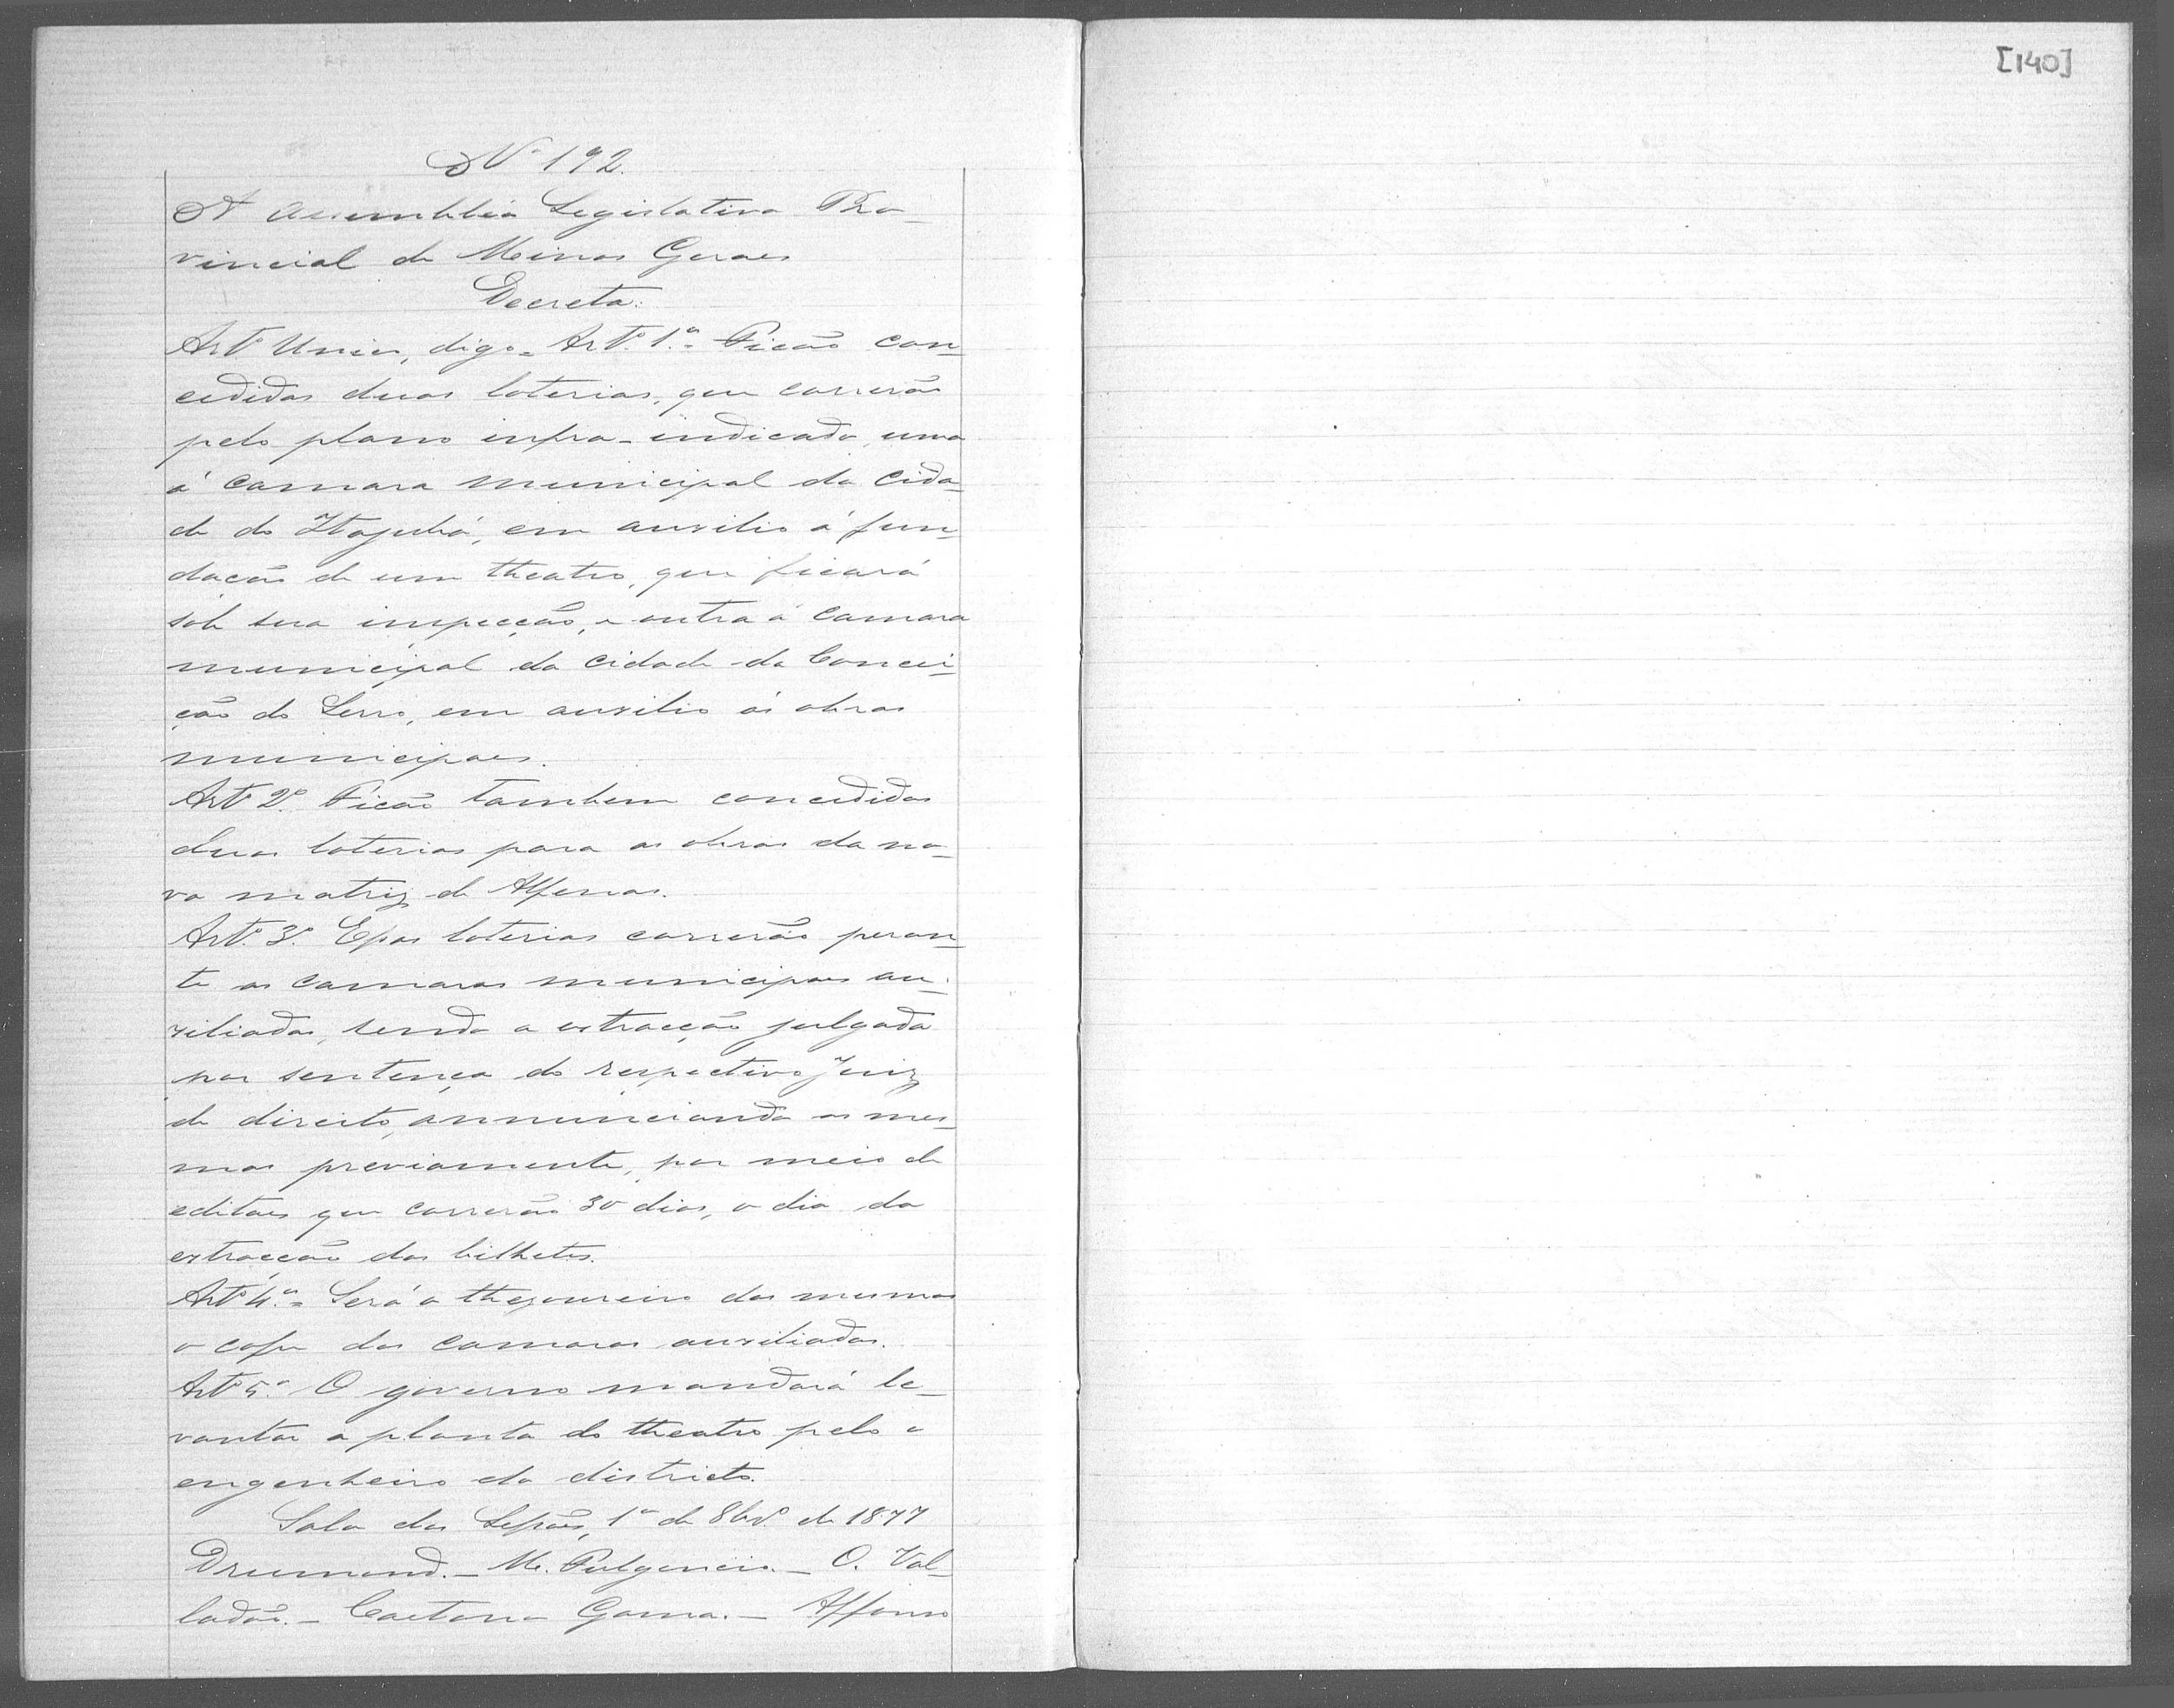 [140]
Nº 192.
A Assembléa Legislativa Pro-
vincial de Minas Geraes
Decreta:
Artº Unico, digo = Artº 1.º = Ficão con-
cedidas duas loterias, que correrão
pelo plano infra-indicado, uma
á camara municipal da cida-
de de Itajubá, em auxilio á fun-
dação de um theatro, que ficará
sob sua inspecção, e outra á camara
municipal da cidade da Concei-
ção do Serro, em auxilio ás obras
municipaes.
Artº 2º. Ficão tambem concedidas
duas loterias para as obras da no-
va matriz de Alfenas.
Artº. 3º. Essas loterias correrão peran-
te as camaras municipaes au-
xiliadas, sendo a extracção julgada
por sentença do respectivo Juiz
de direito, annunciando as mes-
mas previamente, por meio de
editaes que correrão 30 dias, o dia da
extracção dos bilhetes.
Artº 4.º = Será o thezoureiro das mesmas
o cofre das camaras auxiliadas.
Artº 5.º O governo mandará le-
vantar a planta do theatro pelo
engenheiro do districto.
Sala das Sessões, 1º de 8brº. de 1877
Drumond. _ M. Fulgencio. _ O. Val-
ladão. _ Caetano Gama. _ Affonso